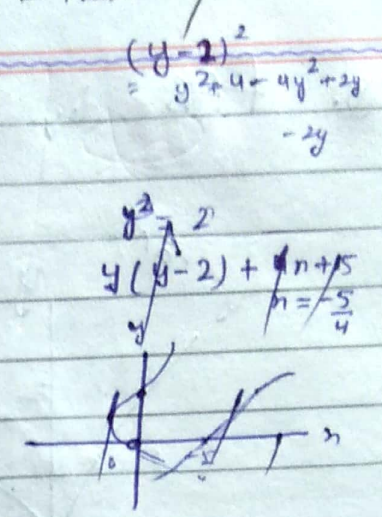 (y-2)²
= y²+4-4y²+2y
-2y
y² = 2
y(y-2) + 4n+5
n = -5/4
y
n